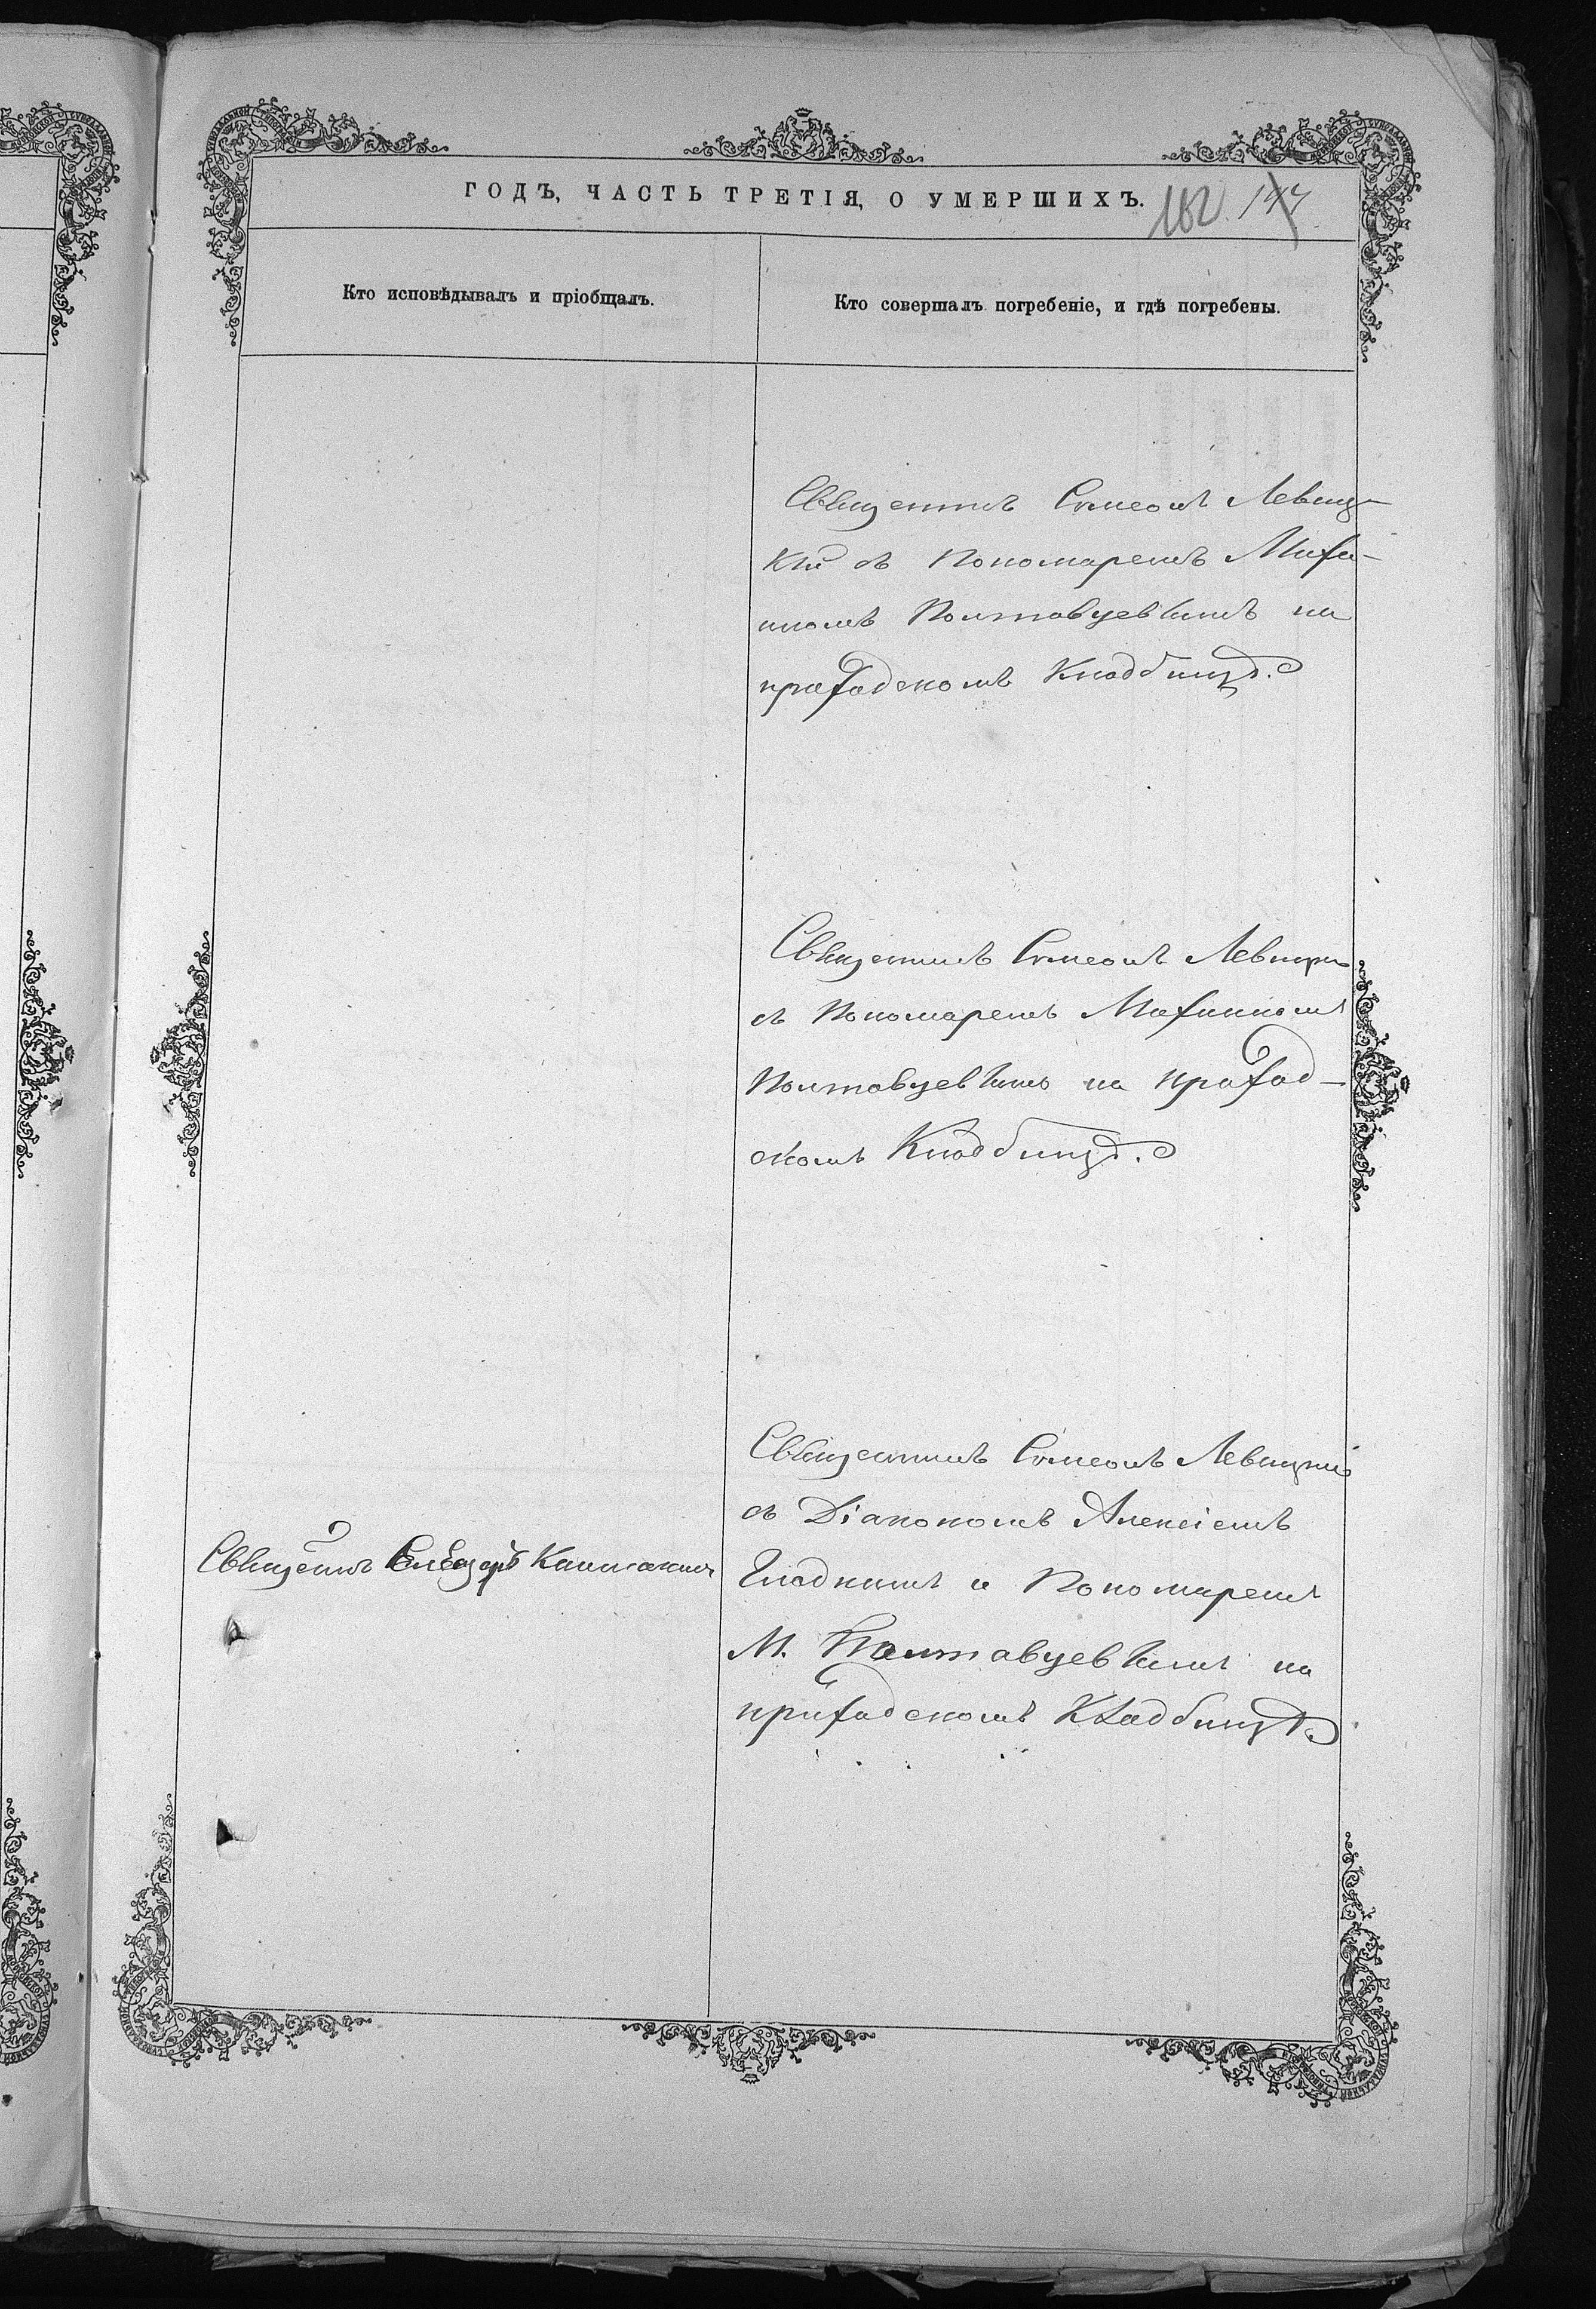 ГОДЪ, ЧАСТЬ ТРЕТІЯ, О УМЕРШИХЪ.
182 147
Кто исповѣдывалъ и пріобщалъ.
Кто совершалъ погребеніе, и гдѣ погребены.
Священникъ Симеонъ Левиц-
кій съ Пономаремъ Михаи-
ломъ Полтавцевымъ на
приходскомъ Кладбищѣ.
Священникъ Симеонъ Левицкій
съ Пономаремъ Михаиломъ
Полтавцевымъ на приход-
скомъ Кладбищѣ.
Священникъ Симеонъ Левицкій
съ Діакономъ Алексіемъ
Гладкимъ и Пономаремъ
М. Полтавцевымъ на
приходскомъ Кладбищѣ
Священникъ Елеазаръ